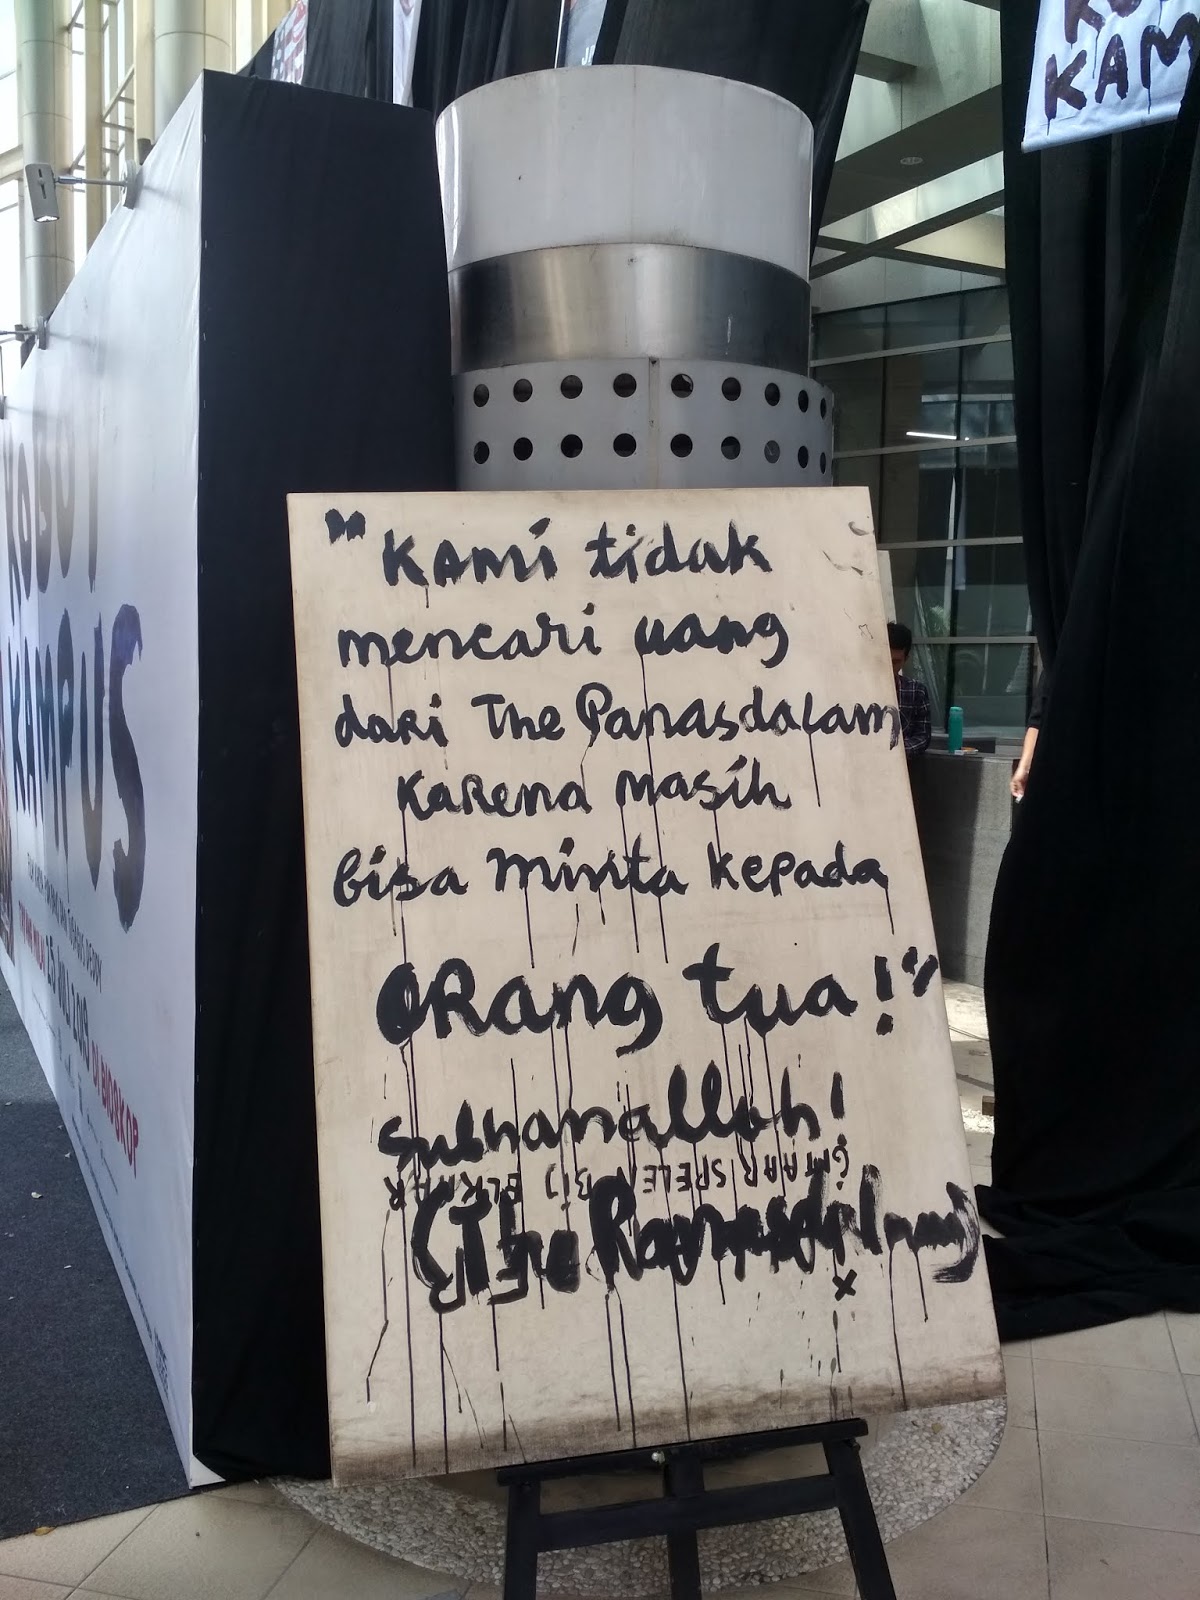 KOBOY
KAMPUS
25 JULI 2019 DI BIOSKOP
KAM
"Kami tidak
mencari uang
dari The Panasdalam
Karena masih
bisa minta kepada
ORang tua!"
Subhanallah!
GITAAR SPELEN BIJ ELKAAR
(The Panasdalam)